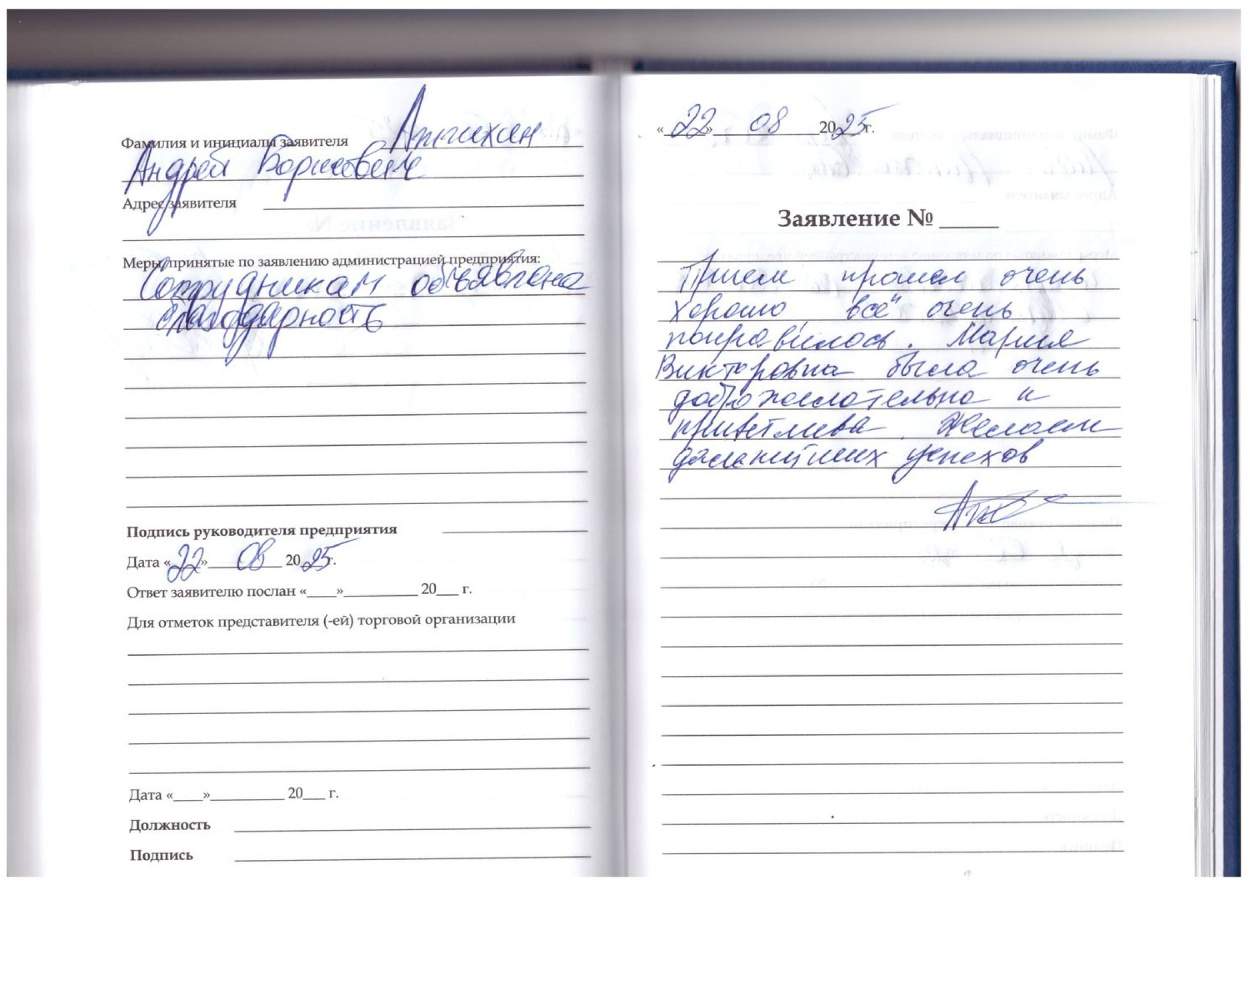 Фамилия и инициалы заявителя
Андрей Борисович
Адрес заявителя
Меры, принятые по заявлению администрацией предприятия:
Сотрудникам объявлена
благодарность
Подпись руководителя предприятия
Дата «22» 08 2025г.
Ответ заявителю послан «____»__________ 20___ г.
Для отметок представителя (-ей) торговой организации
Дата «____»__________ 20___ г.
Должность
Подпись
«22» 08 2025г.
Заявление № _____
Прием прошел очень
хорошо все очень
понравилось. Мария
Викторовна была очень
доброжелательна и
приветлива. Желаем
дальнейших успехов